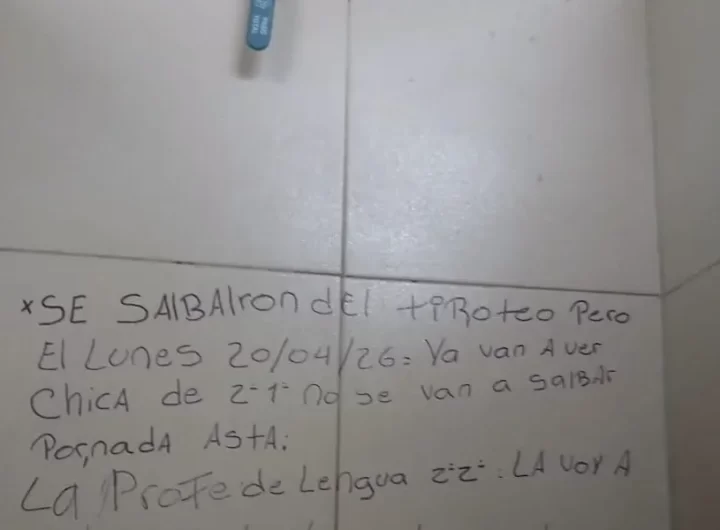 *SE SAlBAIron del tiRoteo Pero
El Lunes 20/04/26= Ya van A ver
ChicA de 2º1º no se van a SalBAr
Por nadA AstA:
La Profe de Lengua 2º2º. LA voy A